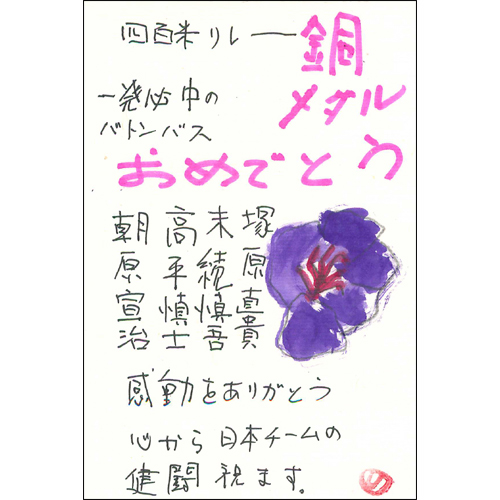 四百米リレー
銅
メダル
一発必中の
バトンパス
おめでとう
塚原直貴
末続慎吾
高平慎士
朝原宣治
感動をありがとう
心から日本チームの
健闘祝ます。